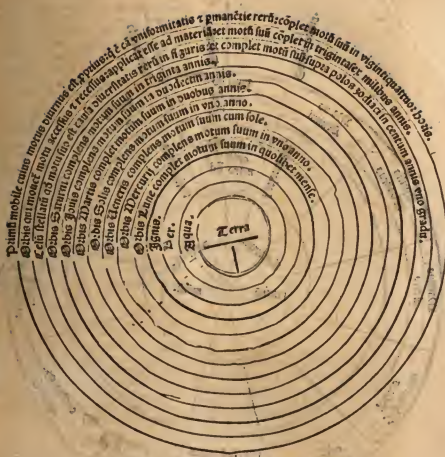 Primū mobile cuius motus diurnus est. pprius: & ē cā vniformitatis ⁊ pmanētie rerū: cōplet motū suū in vigintiquatuor horis.
Orbis qui mouet̄ motu accessus ⁊ recessus: applicat esse ad materiā: et motū suū cōplet in trigintasex milibus annis.
Celū stellatū ad motū eius est causa diuersitatis rerū in figuris: et complet motū suū supra polos zodiaci in centum annis vno gradu.
Orbis Saturni complens motum suum in triginta annis.
Orbis Iouis complens motum suum in duodecim annis.
Orbis Martis complet motum suum in duobus annis.
Orbis Solis complens motum suum in vno anno.
Orbis Ueneris complens motum suum cum sole.
Orbis Mercurij complens motum suum in vno anno.
Orbis Lune complet motum suum in quolibet mense.
Ignis.
Aer.
Aqua.
Terra